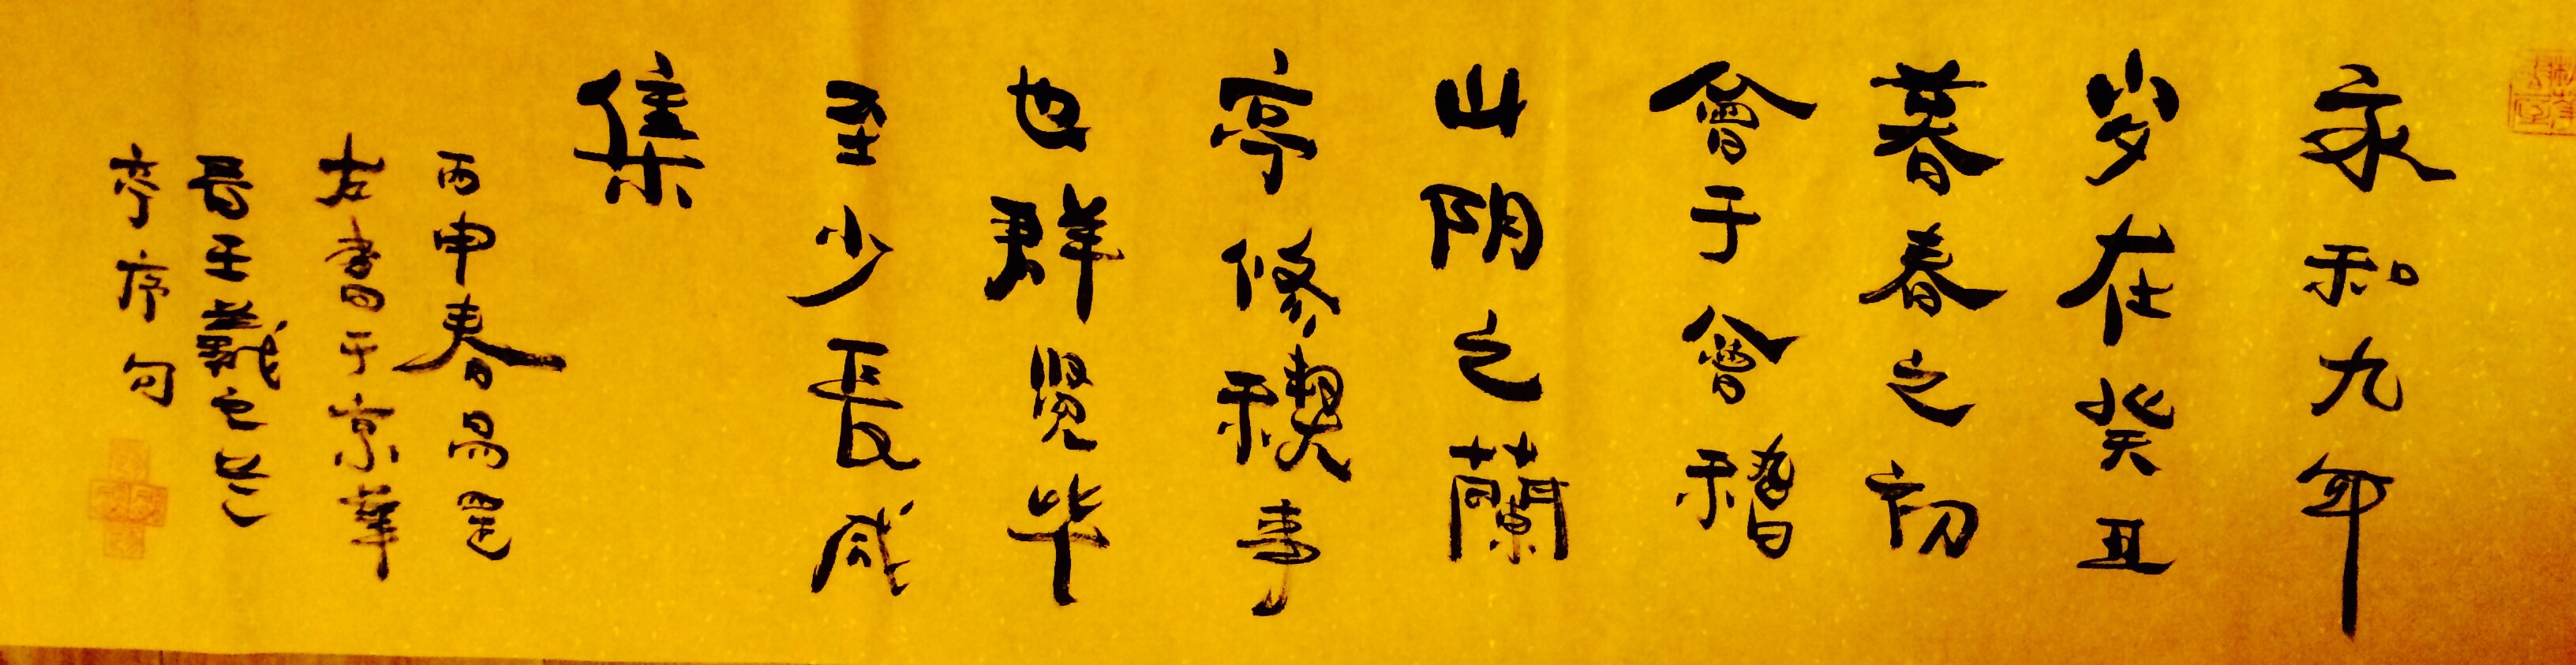 永和九年
岁在癸丑
暮春之初
會于會稽
山阴之蘭
亭修禊事
也群贤毕
至少长咸
集
丙申春易罡
左書于京華
晋王羲之兰
亭序句